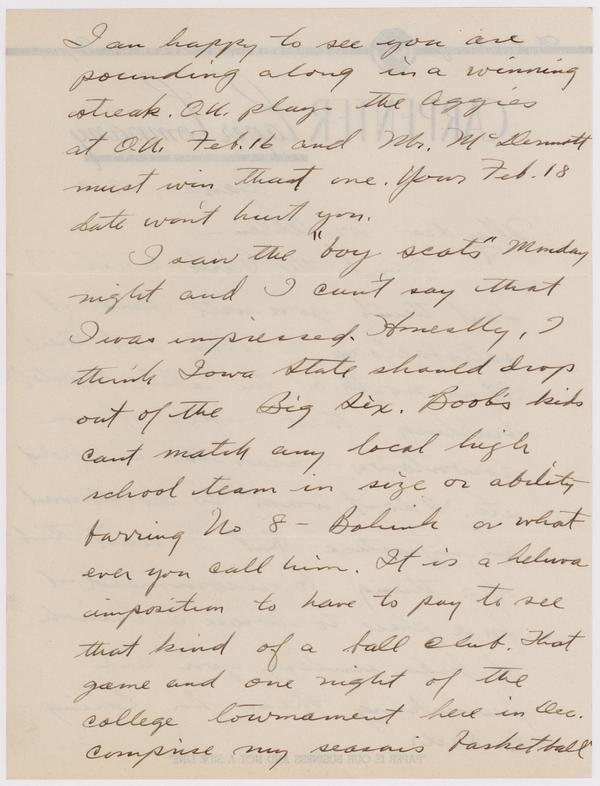 I am happy to see you are
pounding along in a winning
streak. O.U. plays the Aggies
at O.U. Feb. 16 and Mr. McDermott
must win that one. Your Feb. 18
date won't hurt you.
I saw the "boy scats" Monday
night and I can't say that
I was impressed. Honestly, I
think Iowa State should drop
out of the Big Six. Boob's kids
cant match any local high
school team in size or ability
barring No 8 - Bohink or what
ever you call him. It is a heluva
imposition to have to pay to see
that kind of a ball club. That
game and one night of the
college tournament here in Dec.
comprise my season's basketball
CARPENTER Paper Company
"PAPER IS OUR BUSINESS AND NOT A SIDE LINE"